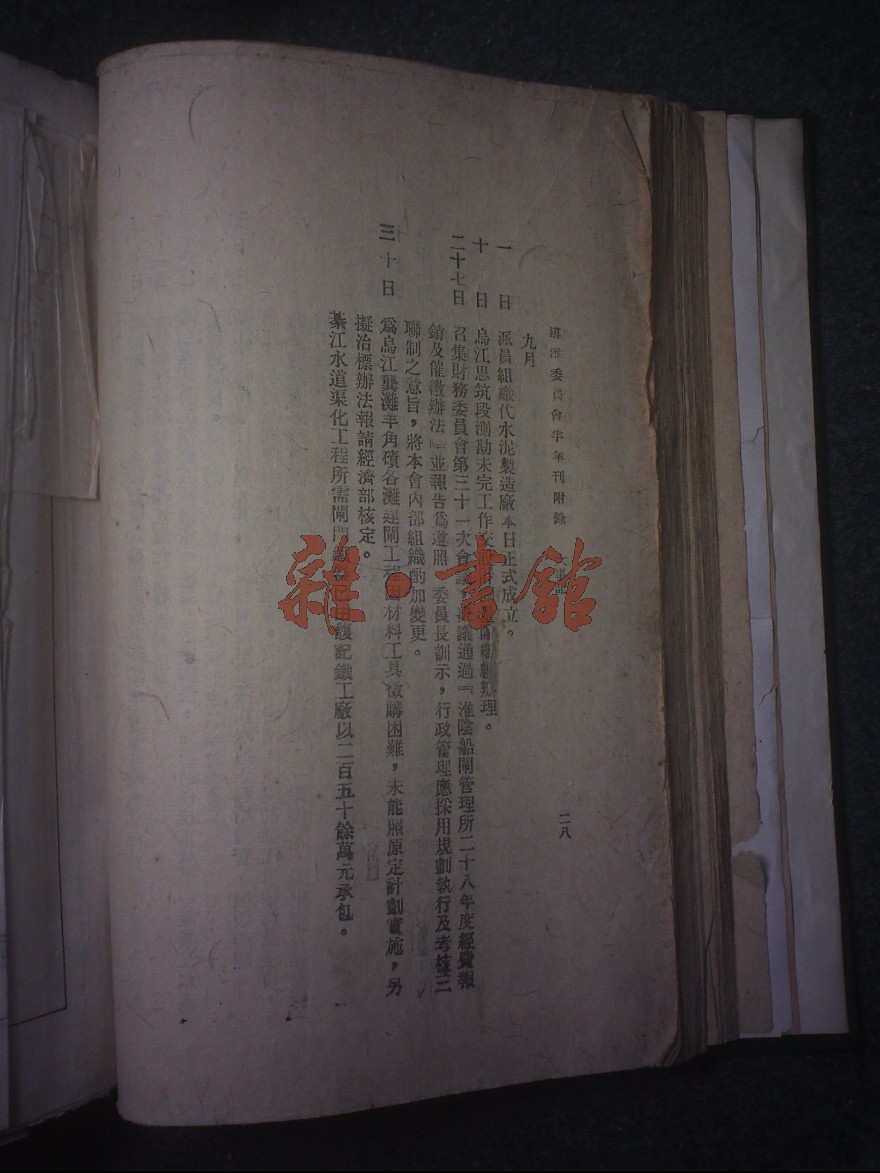 導淮委員會半年刊附錄
二八
九月
一日 派員組織代水泥製造廠本日正式成立。
十日 烏江思筑段測勘未完工作 辦理。
二十七日 召集財務委員會第三十一次會議 決議通過『淮陰船閘管理所二十八年度經費報
銷及催徵辦法』並報告爲遵照 委員長訓示，行政管理應採用規劃執行及考核三
聯制之意旨，將本會內部組織酌加變更。
三十日 爲烏江龔灘羊角磧各灘建閘工程因材料工具徵購困難，未能照原定計劃實施，另
擬治標辦法報請經濟部核定。
綦江水道渠化工程所需閘門 記鐵工廠以二百五十餘萬元承包。
雜·書館